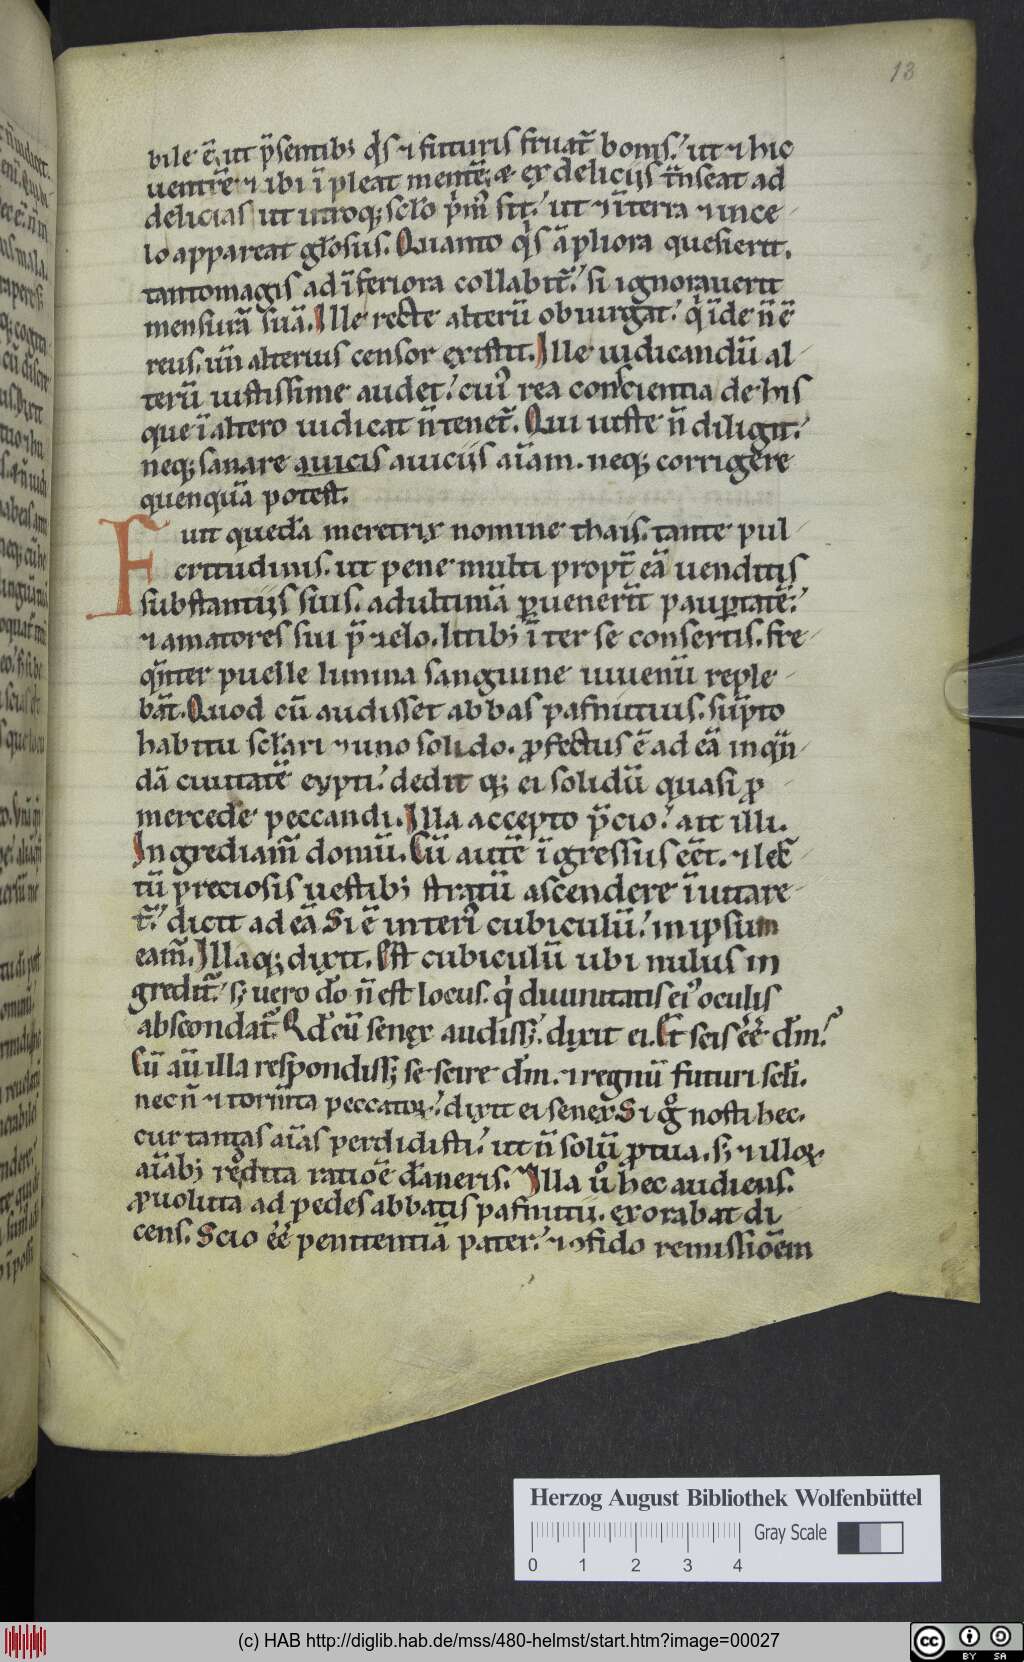 13
bile ē. ut p̄sentib; q̇s ⁊ futuris fruat̄ bonis.' ut ⁊ hic
uentrē ⁊ ibi ī pleat mentē, & ex deliciis t̄nseat ad
delicias ut utroq; sclo p̄m̄ sit.' ut ⁊ ī terra ⁊ in ce
lo appareat glosus. Quanto q̇s āpliora quesierit.
tantomagis ad īferiora collabit̄.' si ignorauerit
mensurā suā. Ille recte alterū obiurgat.' q̇ īde n̄ ē
reus. ut n̄ alterius censor existit. Ille iudicandū al
terū iustissime audet.' cui' rea conscientia de his
que ī altero iudicat n̄ tenet̄. Qui iuste n̄ diligit.'
neq; sanare a uiciis a uiciis aīam. neq; corrigere
quenquā potest.
Fuit quedā meretrix nomine thais. tante pul
critudinis. ut pene multi propt̄ eā uenditis
substantiis suis. ad ultimā puenerīt paupertatē.'
⁊ amatores sui p̄ zelo. litib; ī ter se consertis. fre
qn̄ter puelle limina sanguine iuuenū reple
bāt. Quod cū audisset abbas pafnutius. sūpto
habitu sclari ⁊ uno solido. pfectus ē ad eā in q̄n
dā ciuitatē eypti.' dedit q; ei solidū quasi p
mercede peccandi. Illa accepto p̄cio.' ait illi.
Ingrediam̄ domū. Cū autē īgressus eēt. ⁊ lec
tū preciosis uestib; stratū ascendere īuitare
t̄.' dicit ad eā Si ē interi' cubiculū.' in ipsum
eam̄. Illaq; dixit. Est cubiculū ubi nulus in
gredit̄.' s; uero do n̄ est locus. q̇ diuinitatis ei' oculis
abscondat̄. Qd cū senex audiss;.' dixit ei. Et scis eē dm̄.'
Cū aū illa respondiss; se scire dm̄. ⁊ regnū futuri scli.
nec n̄ ⁊ torm̄ta peccatoꝝ.' dixit ei senex. Si g° nosti hec.
cur tantas aīas perdidisti.' ut n̄ solū p tua. s; ⁊ illoꝝ
aīab; reddita ratioē dāneris. Illa u° hec audiens.
puoluta ad pedes abbatis pafnutii. exorabat di
cens. Scio eē penitentiā pater.' ⁊ ꝯfido remissioēm
Herzog August Bibliothek Wolfenbüttel
Gray Scale
0 1 2 3 4
(c) HAB http://diglib.hab.de/mss/480-helmst/start.htm?image=00027
cc BY SA